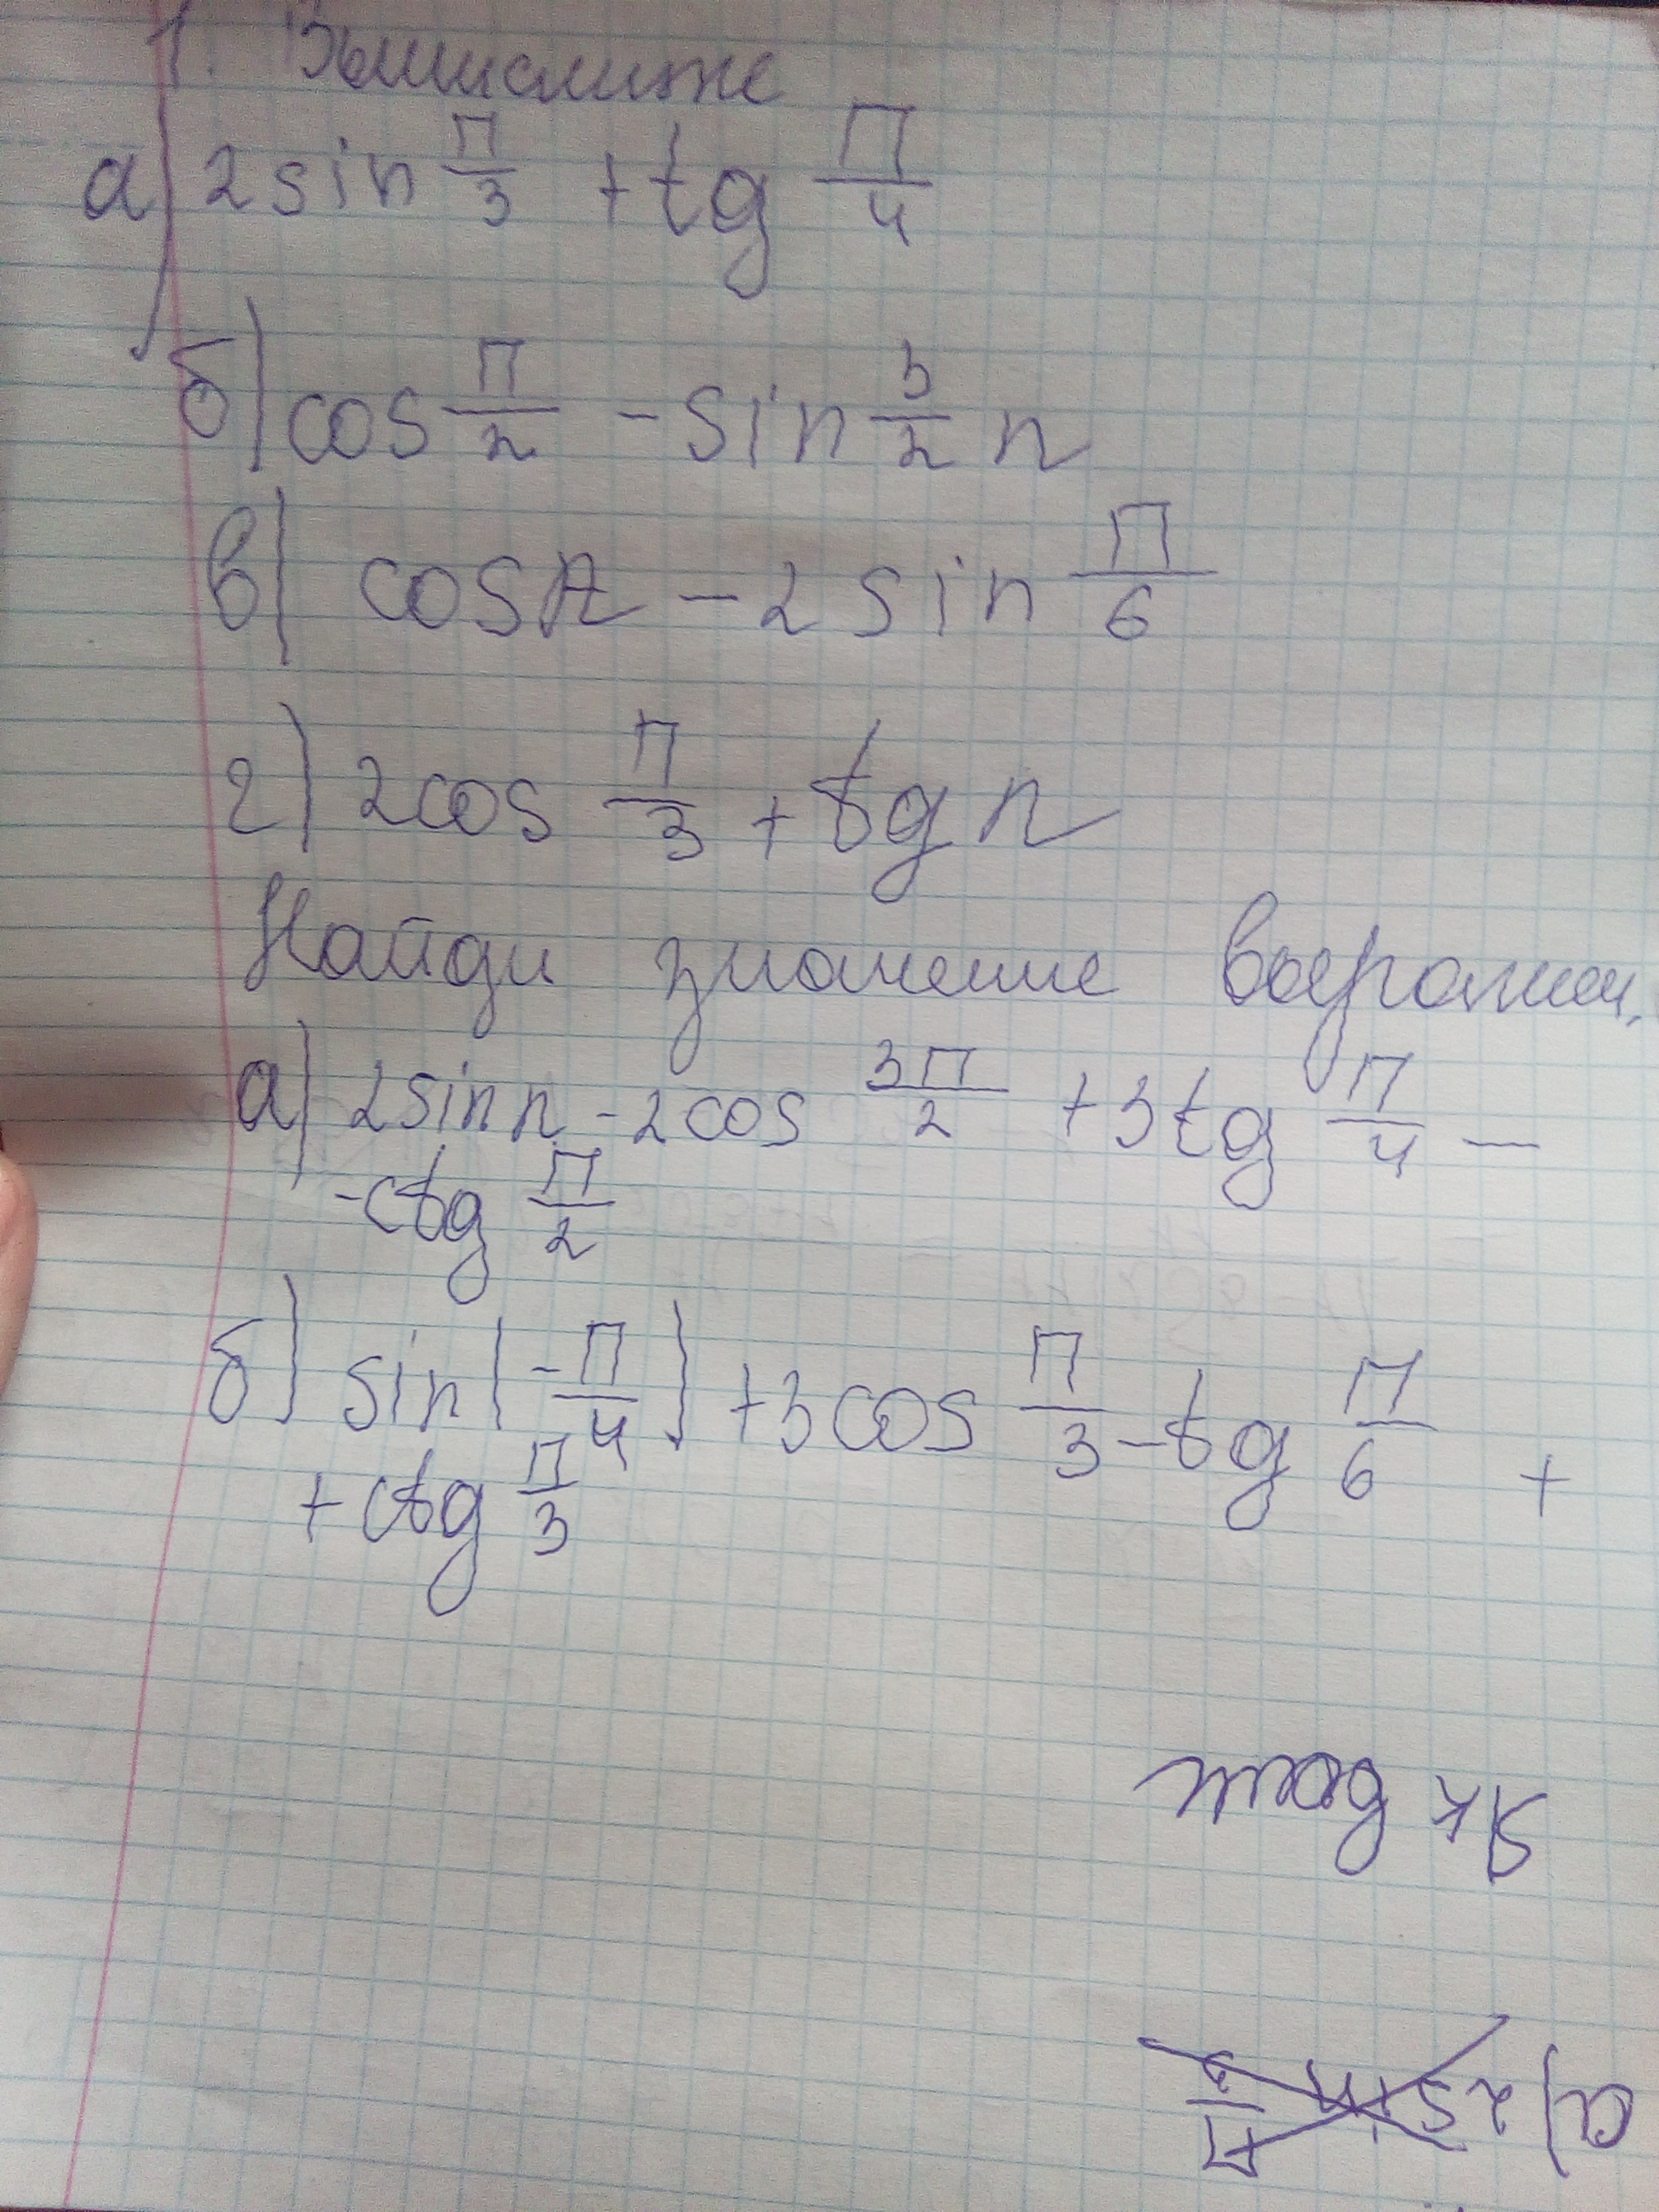 1. Вычислите
а) 2 sin π/3 + tg π/4
б) cos π/2 - sin 3/2 π
в) cos π - 2 sin π/6
г) 2 cos π/3 + tg π
Найди значение выражен.
а) 2 sin π - 2 cos 3π/2 + 3 tg π/4 -
- ctg π/2
б) sin(-π/4) + 3 cos π/3 - tg π/6 +
+ ctg π/3
а) 2 sin π/3